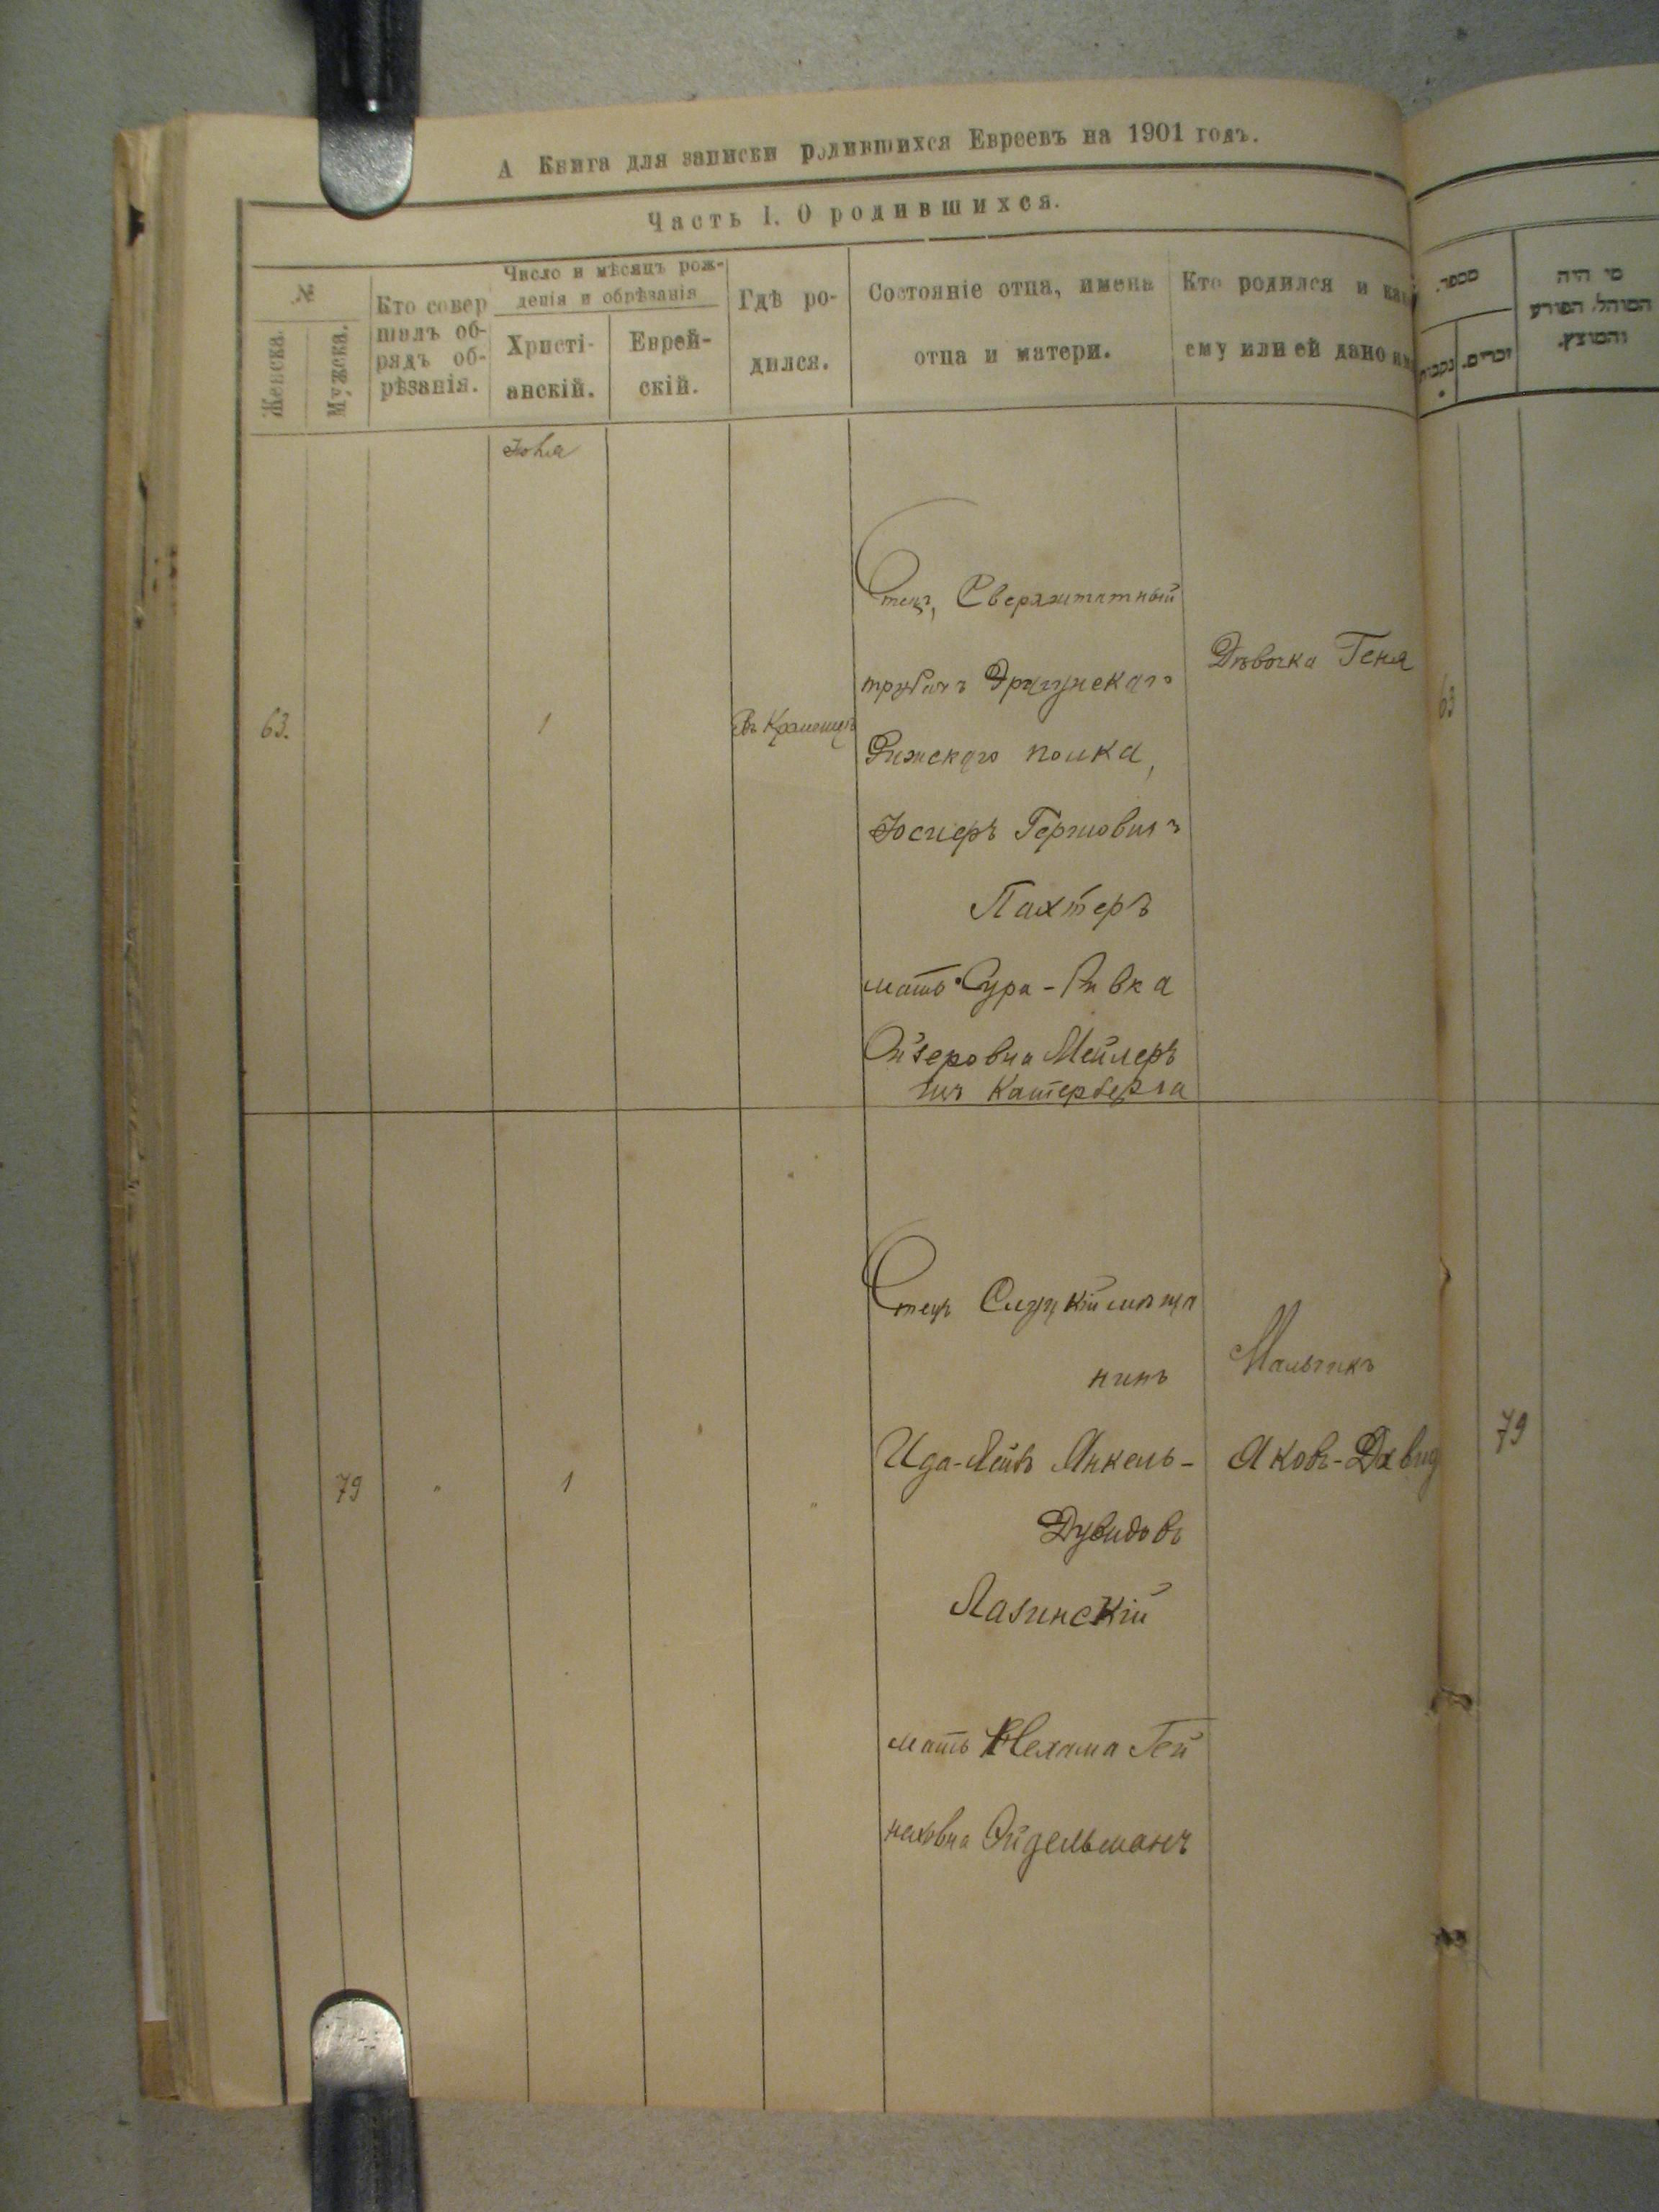 А Книга для записки родившихся Евреевъ на 1901 годъ.
Часть I. О родившихся.
№
Женска.
Мужска.
Кто совер
шалъ об-
рядъ об-
рѣзанія.
Число и мѣсяцъ рож-
денія и обрѣзанія
Христі-
анскій.
Еврей-
скій.
Гдѣ ро-
дился.
Состояніе отца, имена
отца и матери.
Кто родился и как
ему или ей дано им
מספר.
נקבות
זכרים.
מי היה
המוהל, הפורע
והמוצץ.
Іюля
63.
1
Въ Кременцѣ
Отецъ, Сверхштатный
трубачъ Драгунскаго
Рижскаго полка,
Іосперъ Гершовичъ
Пахтеръ
мать Сура-Ривка
Ойзеровна Мейлеръ
изъ Катербурга
Дѣвочка Геня
63
79
"
1
"
Отецъ Слуцкій мѣща
нинъ
Ида-Лейбъ Янкель-
Дувидовъ
Лазинскій
мать Нехама Гей
наховна Эйдельманъ
Мальчикъ
Яковъ-Давид
79